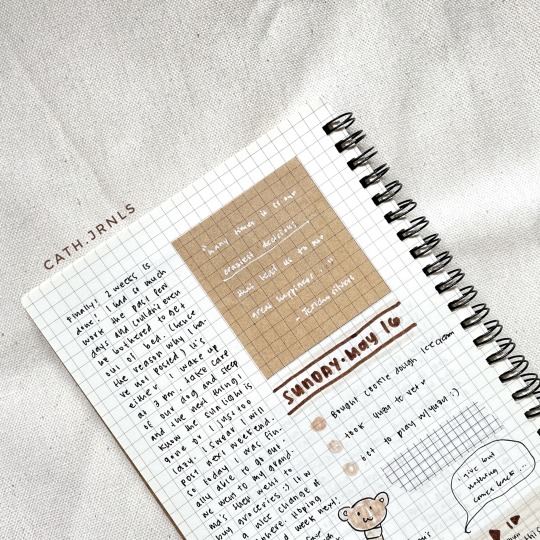 CATH.JRNLS
Finally! 2 weeks is
done! I had so much
work the past few
days and couldn't even
be bothered to get
out of bed. (hence
the reason why I ha-
ve not posted) It's
either I wake up
at 3 pm, take care
of our dog and sleep
and the next thing I
know the sunlight is
gone or I just too
lazy. I swear I will
post next weekend.
so today I was fin-
ally able to go out.
we went to my grand-
ma's then went to
buy groceries :) It w
a nice change of
Hoping
good week next
"many times it is our
craziest decisions
that lead us to our
great happiness..."
SUNDAY. MAY 16
Bought cookie dough Icecream
took yuzu to vet
Got to play w/yuzu :)
i give but
nothing
comes back...